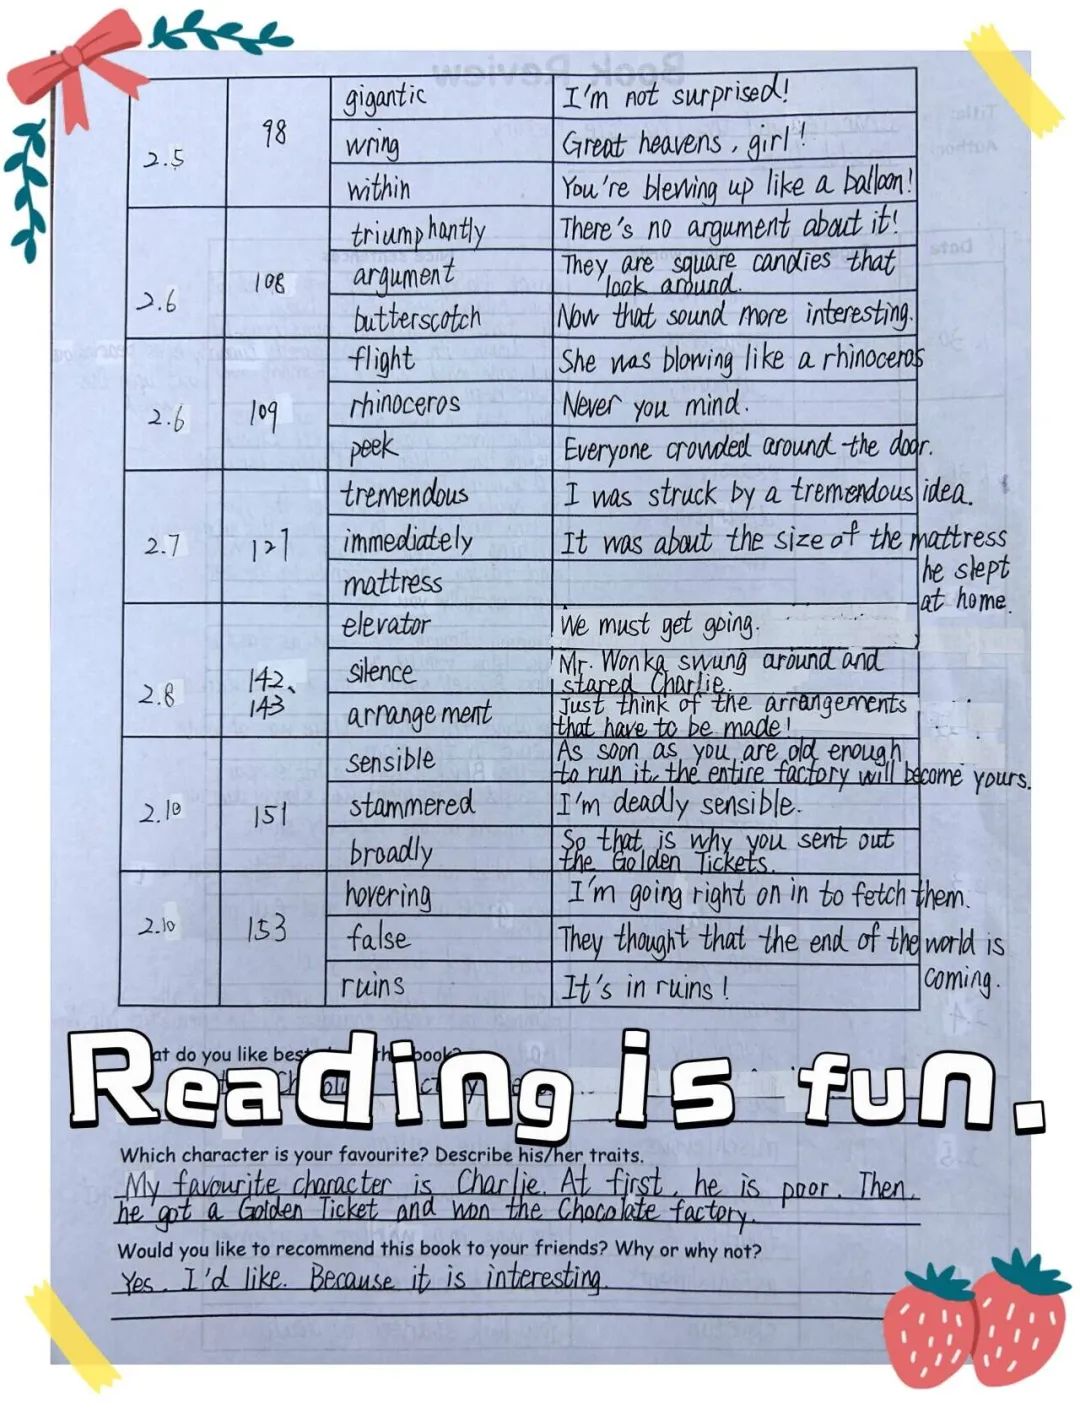 2.5
98
gigantic
I'm not surprised!
wring
Great heavens, girl!
within
You're blewing up like a balloon!
2.6
108
triumphantly
There's no argument about it!
argument
They are square candies that
look around.
butterscotch
Now that sound more interesting.
2.6
109
flight
She was blowing like a rhinoceros
rhinoceros
Never you mind.
peek
Everyone crowded around the door.
2.7
127
tremendous
I was struck by a tremendous idea.
immediately
It was about the size of the mattress
he slept
at home.
mattress
2.8
142、
143
elevator
We must get going.
silence
Mr. Wonka swung around and
stared Charlie.
arrangement
Just think of the arrangements
that have to be made!
2.10
151
sensible
As soon as you are old enough
to run it, the entire factory will become yours.
stammered
I'm deadly sensible.
broadly
So that is why you sent out
the Golden Tickets.
2.10
153
hovering
I'm going right on in to fetch them.
false
They thought that the end of the world is
coming.
ruins
It's in ruins!
at do you like best book?
Reading is fun.
Which character is your favourite? Describe his/her traits.
My favourite character is Charlie. At first, he is poor. Then,
he got a Golden Ticket and won the Chocolate factory.
Would you like to recommend this book to your friends? Why or why not?
Yes. I'd like. Because it is interesting.